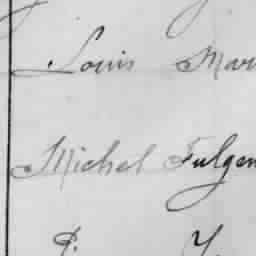 Louis Mari
Michel Fulgen